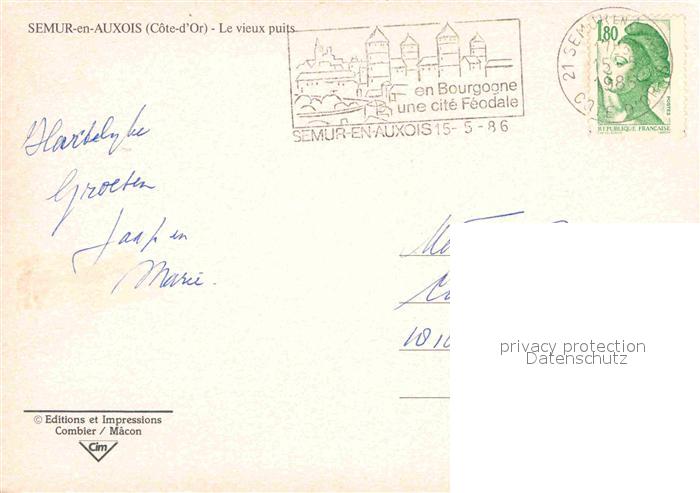 SEMUR-en-AUXOIS (Côte-d'Or) - Le vieux puits
en Bourgogne
une cité Féodale
SEMUR-EN-AUXOIS 15-5-86
21 SEMUR EN
15-5
1986
CÔTE D'OR
1,80
POSTES
REPUBLIQUE FRANÇAISE
Hartelyke
Groeten
Jaap en
Marie.
1010
privacy protection
Datenschutz
© Editions et Impressions
Combier / Mâcon
Cim